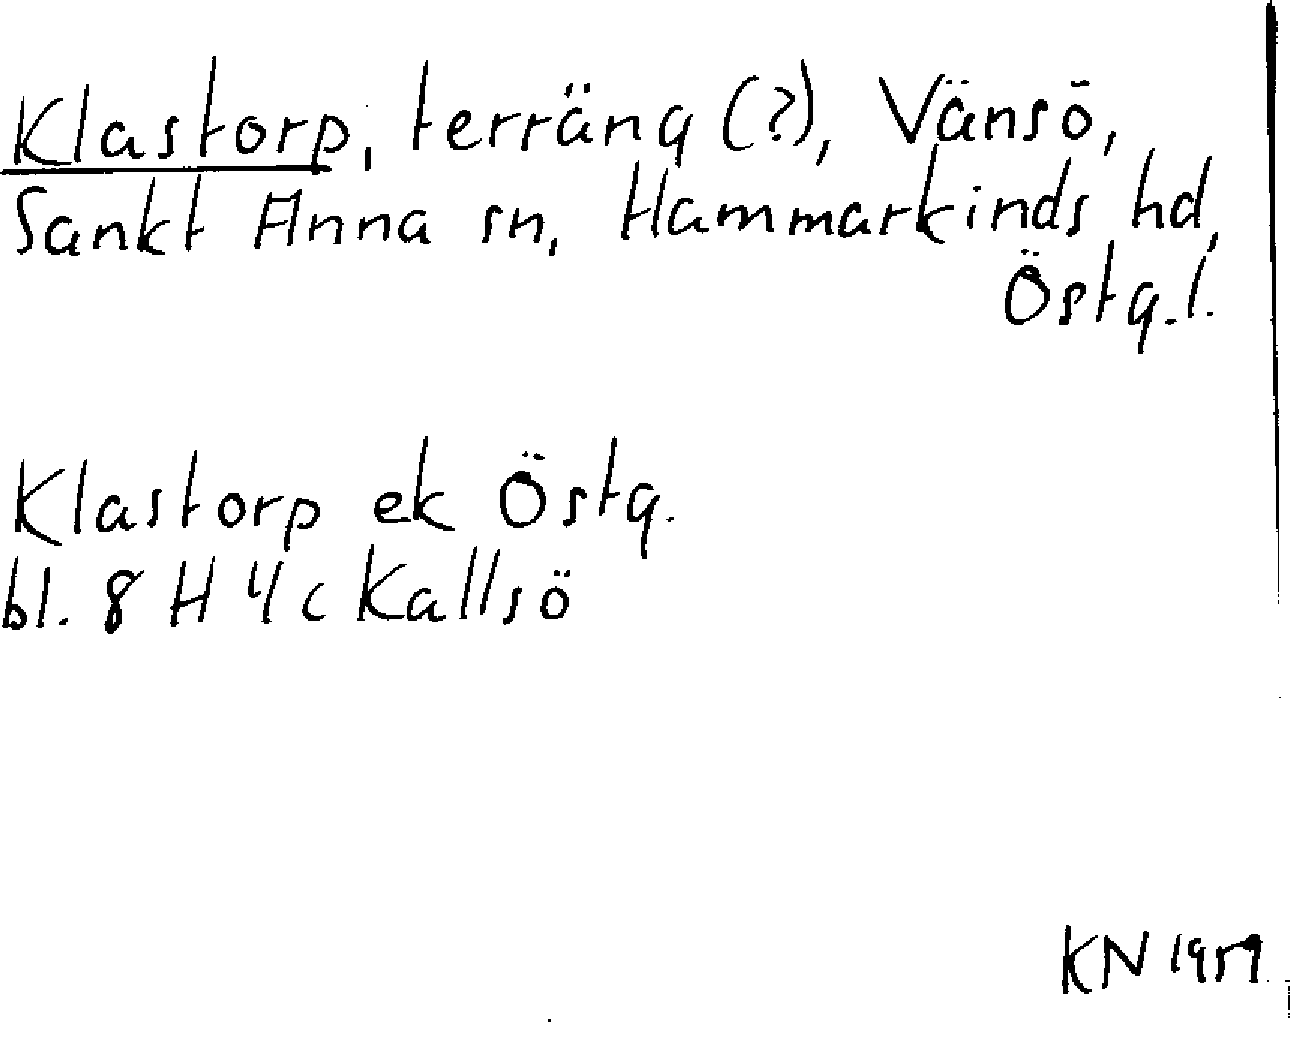 Klastorp, terräng (?), Vänsö,
Sankt Anna sn, Hammarkinds hd,
Östg.l.
Klastorp ek Östg.
bl. 8 H 4 c Kallsö
KN 1959